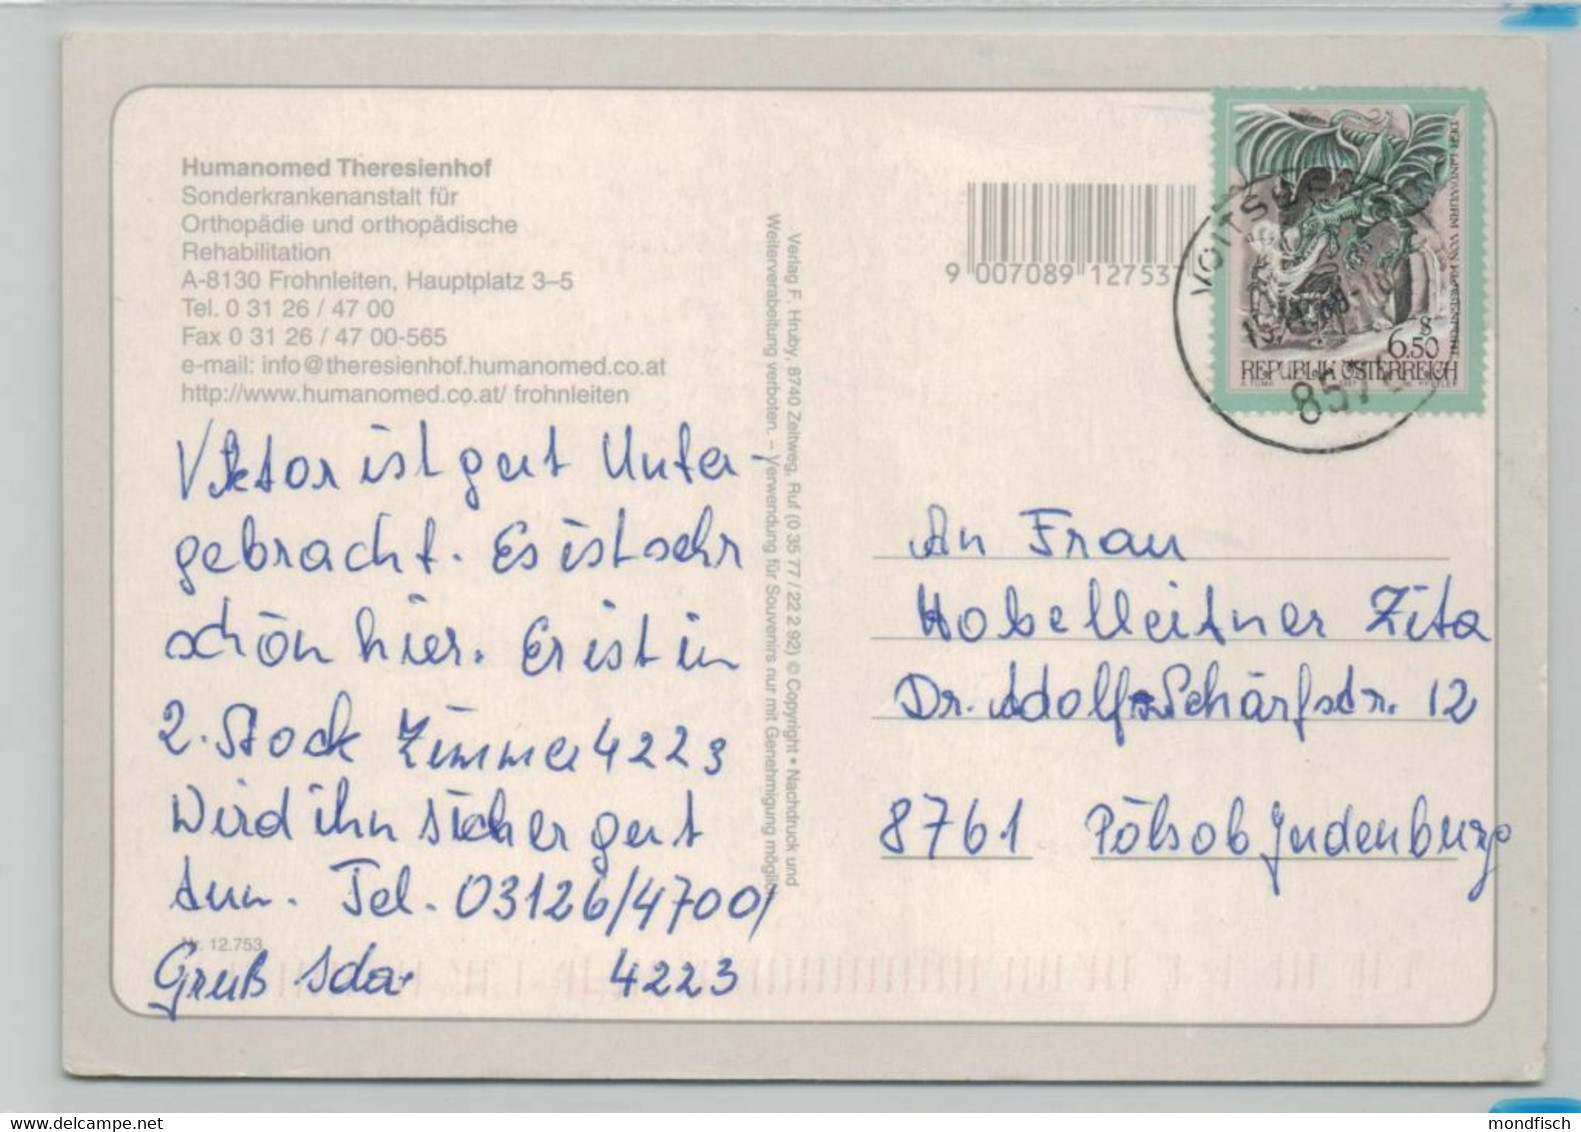 Humanomed Theresienhof
Sonderkrankenanstalt für
Orthopädie und orthopädische
Rehabilitation
A-8130 Frohnleiten, Hauptplatz 3–5
Tel. 0 31 26 / 47 00
Fax 0 31 26 / 47 00-565
e-mail: info@theresienhof.humanomed.co.at
http://www.humanomed.co.at/ frohnleiten
Viktor ist gut Unter-
gebracht. Es ist sehr
schön hier. Er ist in
2. Stock Zimmer 4223
Wird ihn sicher gut
tun. Tel. 03126/4700/
4223
Gruß Ida
Nr. 12.753
Verlag F. Hruby, 8740 Zeltweg, Ruf (0 35 77 / 22 2 92) © Copyright • Nachdruck und
Weiterverarbeitung verboten. – Verwendung für Souvenirs nur mit Genehmigung möglich
9 007089 12753
DER LINDWURM VON KLAGENFURT
S
6.50
REPUBLIK ÖSTERREICH
VOITSB
857
An Frau
Hobelleitner Zita
Dr. Adolf-Schärfstr. 12
8761 Pölsob Judenburg
mondfisch